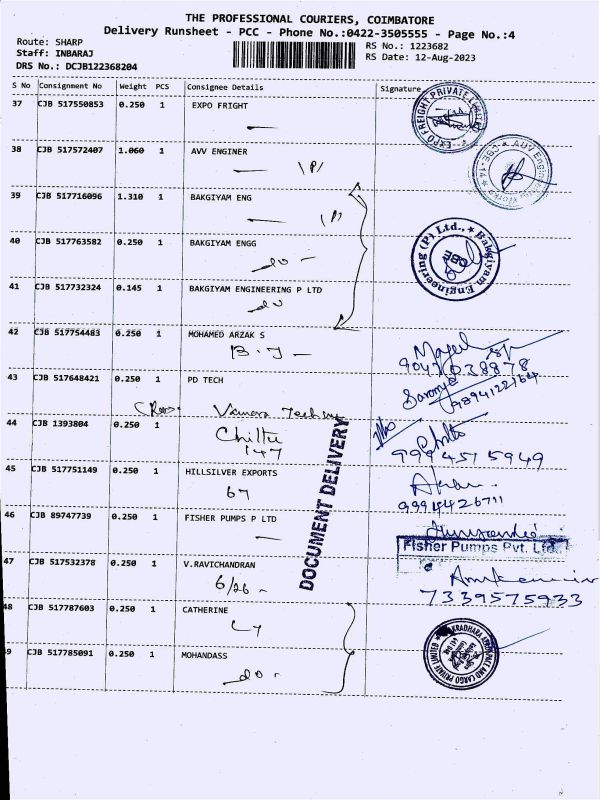 THE PROFESSIONAL COURIERS, COIMBATORE
Delivery Runsheet - PCC - Phone No.:0422-3505555 - Page No.:4
Route: SHARP
Staff: INBARAJ
DRS No.: DCJB122368204
RS No.: 1223682
RS Date: 12-Aug-2023
S No Consignment No Weight PCS Consignee Details Signature
37 CJB 517550853 0.250 1 EXPO FREIGHT
EXPO FREIGHT PRIVATE LIMITED
38 CJB 517572407 1.060 1 AVV ENGINER
39 CJB 517716096 1.310 1 BAKGIYAM ENG
40 CJB 517763582 0.250 1 BAKGIYAM ENGG
do -
Bakgiyam Engineering (P) Ltd.,
CBE
41 CJB 517732324 0.145 1 BAKGIYAM ENGINEERING P LTD
do
42 CJB 517754483 0.250 1 MOHAMED ARZAK S
B.J -
9047038878
43 CJB 517648421 0.250 1 PD TECH
9894122164
44 CJB 1393804 0.250 1
Chittu
147
9994575949
45 CJB 517751149 0.250 1 HILLSILVER EXPORTS
67
9994426711
DOCUMENT DELIVERY
46 CJB 89747739 0.250 1 FISHER PUMPS P LTD
Fisher Pumps Pvt. Ltd.
47 CJB 517532378 0.250 1 V.RAVICHANDRAN
6/26 -
7339575933
48 CJB 517787603 0.250 1 CATHERINE
9 CJB 517785091 0.250 1 MOHANDASS
do -